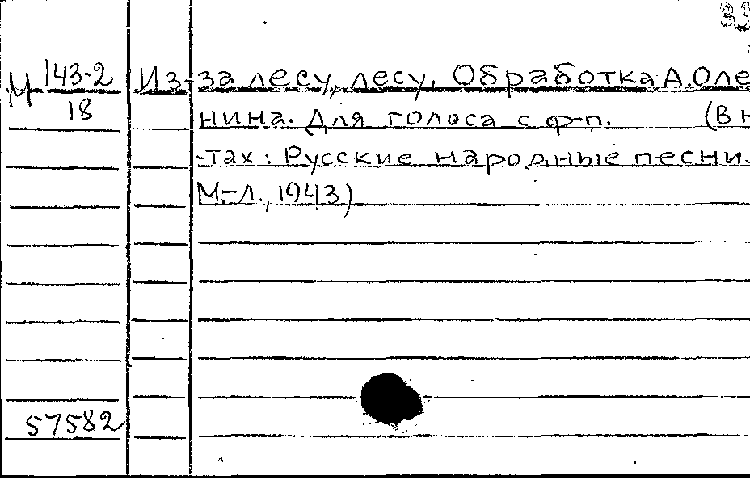 М 143-2/18 Из-за лесу, лесу. Обработка А. Оле
нина. Для голоса с ф-п. (В н
-тах: Русские народные песни.
М-Л., 1943)
57582